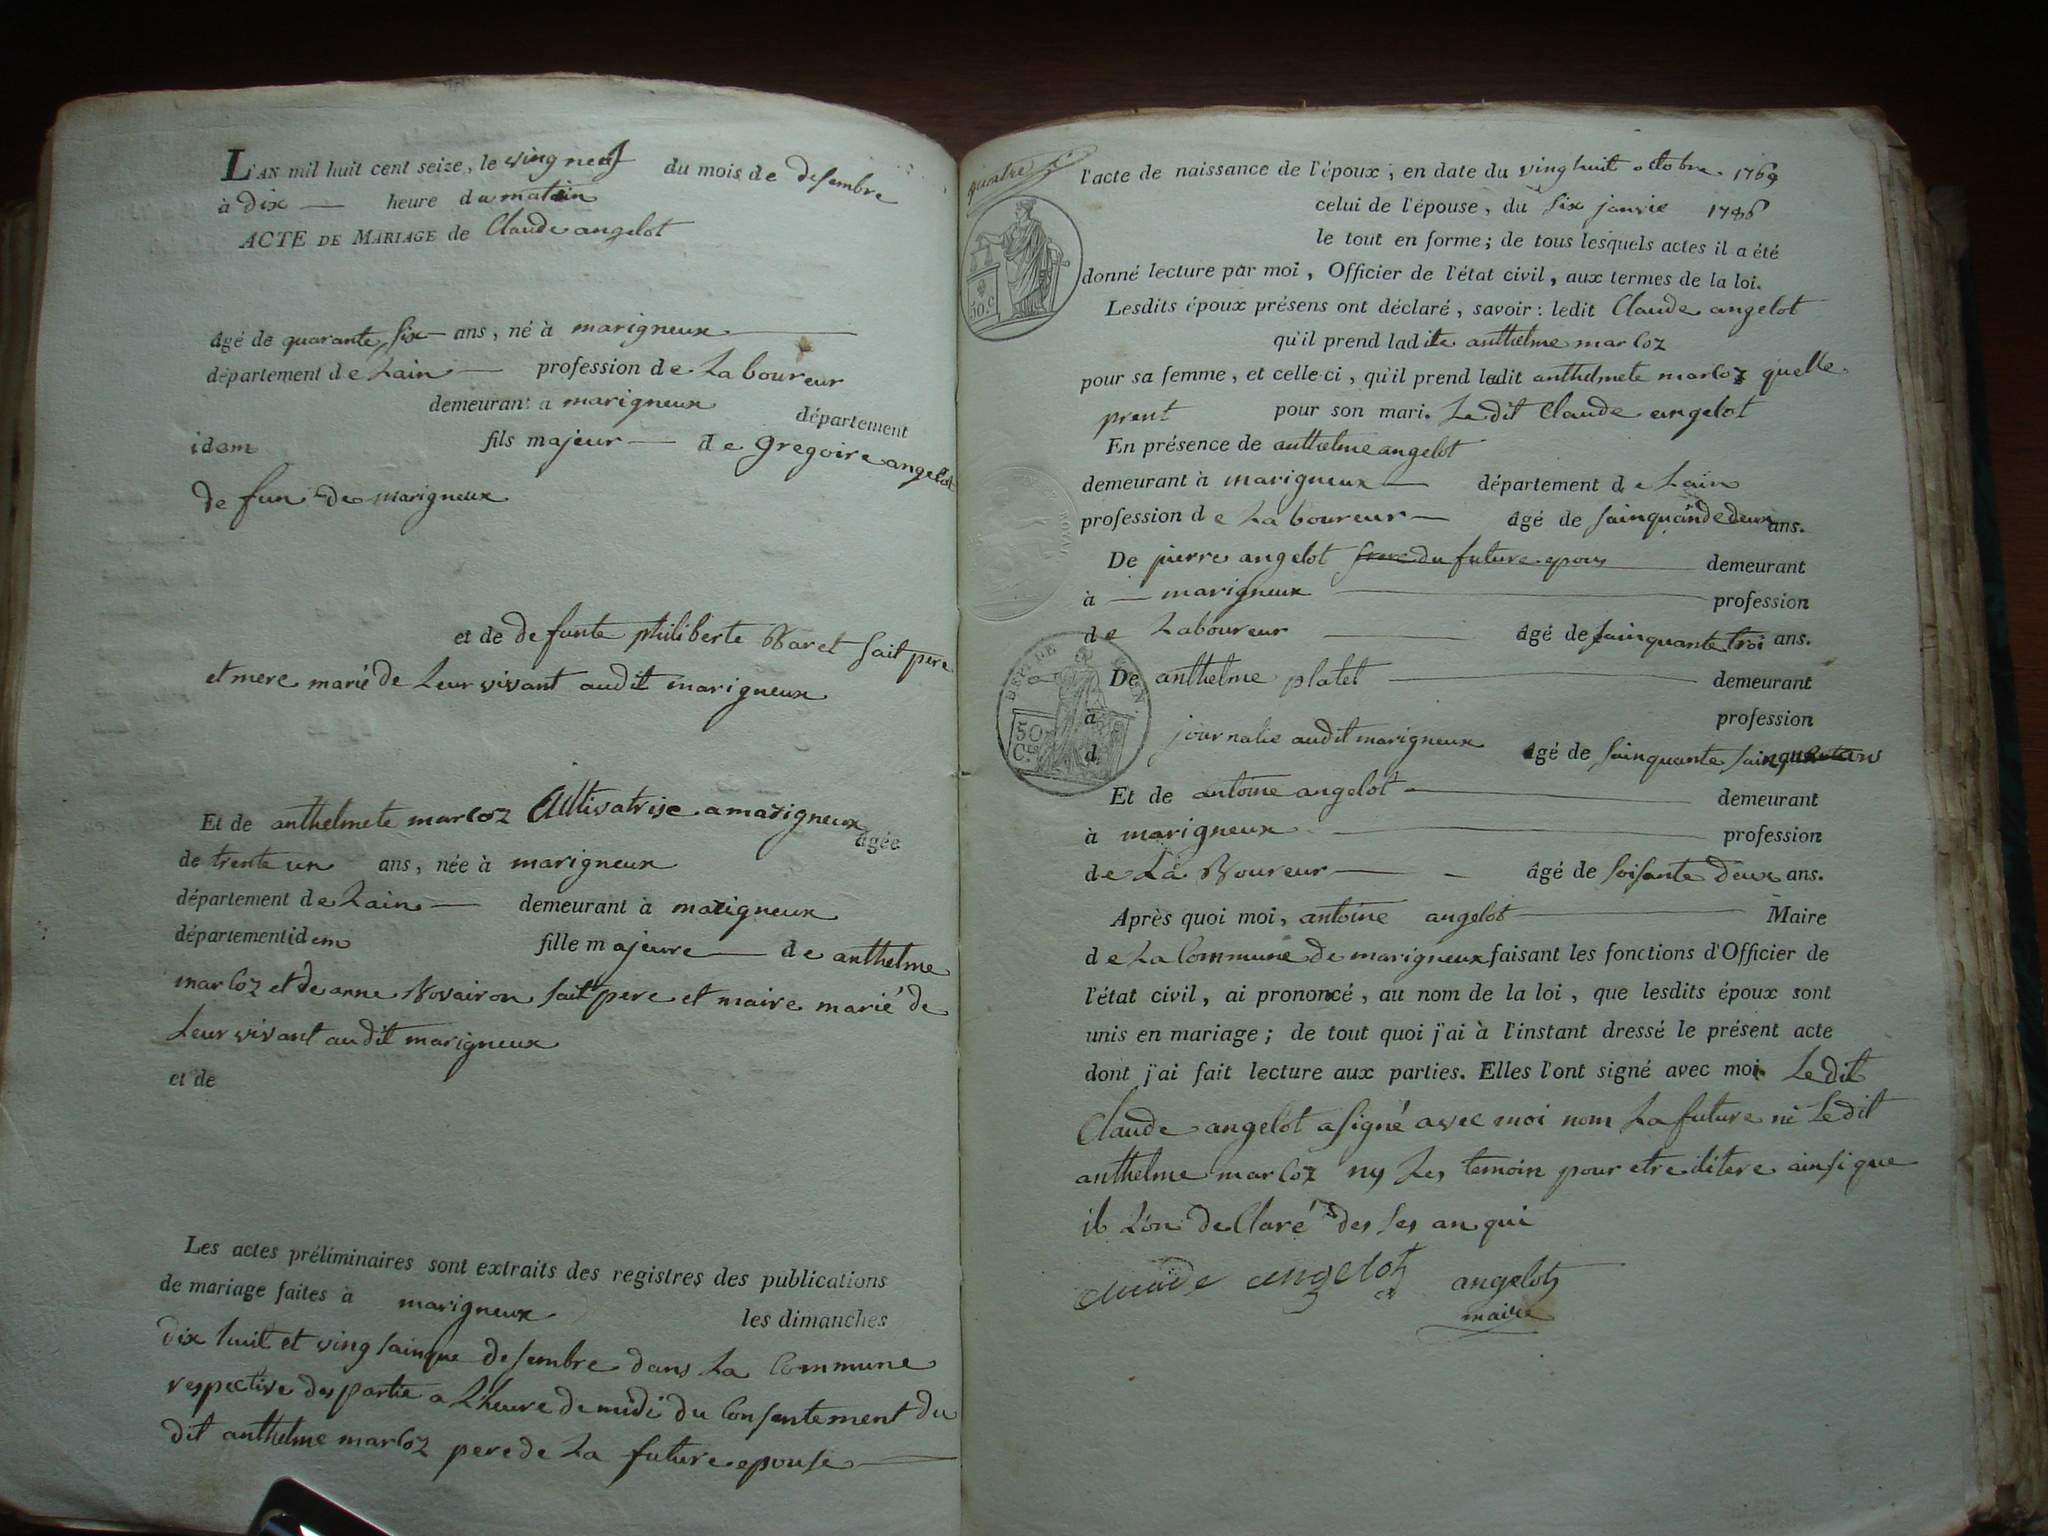 L'AN mil huit cent seize, le ving neuf du mois de desembre
à dix — heure du matin
ACTE DE MARIAGE de Claude angelot
âgé de quarante six ans, né à marigneux
département de Lain — profession de Laboureur
demeurant a marigneux département
idem fils majeur — de gregoire angelot
de fun de marigneux
et de defunte philiberte Baret sait pere
et mere marié de Leur vivant audit marigneux
Et de anthelmete marCoz Cultivatrise a marigneux âgée
de trente un ans, née à marigneux
département de Lain — demeurant à marigneux
département idem fille majeure — de anthelme
marCoz et de anne Bovairon sait pere et maire marié de
Leur vivant audit marigneux
et de
Les actes préliminaires sont extraits des registres des publications
de mariage faites à marigneux les dimanches
dix huit et ving sainque desembre dans La Commune
respective des partie a L'heure de midi du Consentement du
dit anthelme marCoz pere de La future epouse —
quatre
l'acte de naissance de l'époux, en date du ving huit octobre 1769
celui de l'épouse, du six janvie 1786
le tout en forme; de tous lesquels actes il a été
donné lecture par moi, Officier de l'état civil, aux termes de la loi.
50 c
Lesdits époux présens ont déclaré, savoir: ledit Claude angelot
qu'il prend ladite anthelme marCoz
pour sa femme, et celle-ci, qu'il prend ledit anthelmete marCoz quelle
prent pour son mari. Le dit Claude angelot
En présence de anthelme angelot
demeurant à marigneux — département de Lain
profession de Laboureur — âgé de sainquande deux ans.
ROYAL
De pierre angelot frere du future epous demeurant
à — marigneux profession
de Laboureur âgé de sainquante troi ans.
De anthelme platet demeurant
à profession
DEP. DE L'AIN
50 C.es
d journalie audit marigneux âgé de sainquante sainque ans
Et de antoine angelot demeurant
à marigneux profession
de La Boureur — âgé de soisante deux ans.
Après quoi moi, antoine angelot Maire
de La Commune de marigneux faisant les fonctions d'Officier de
l'état civil, ai prononcé, au nom de la loi, que lesdits époux sont
unis en mariage; de tout quoi j'ai à l'instant dressé le présent acte
dont j'ai fait lecture aux parties. Elles l'ont signé avec moi Le dit
Claude angelot a signé avec moi nom La future ni Le dit
anthelme marCoz ny Les temoin pour etre litere ainsi que
il L'on deClaré des ses an qui
claude angelot angelot
maire